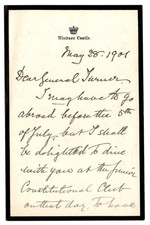 Windsor Castle.
May 28. 1901
Dear General Turner
I may have to go
abroad before the 5th
of July, but I shall
be delighted to dine
with you at the Junior
Constitutional Club
on that day, to have